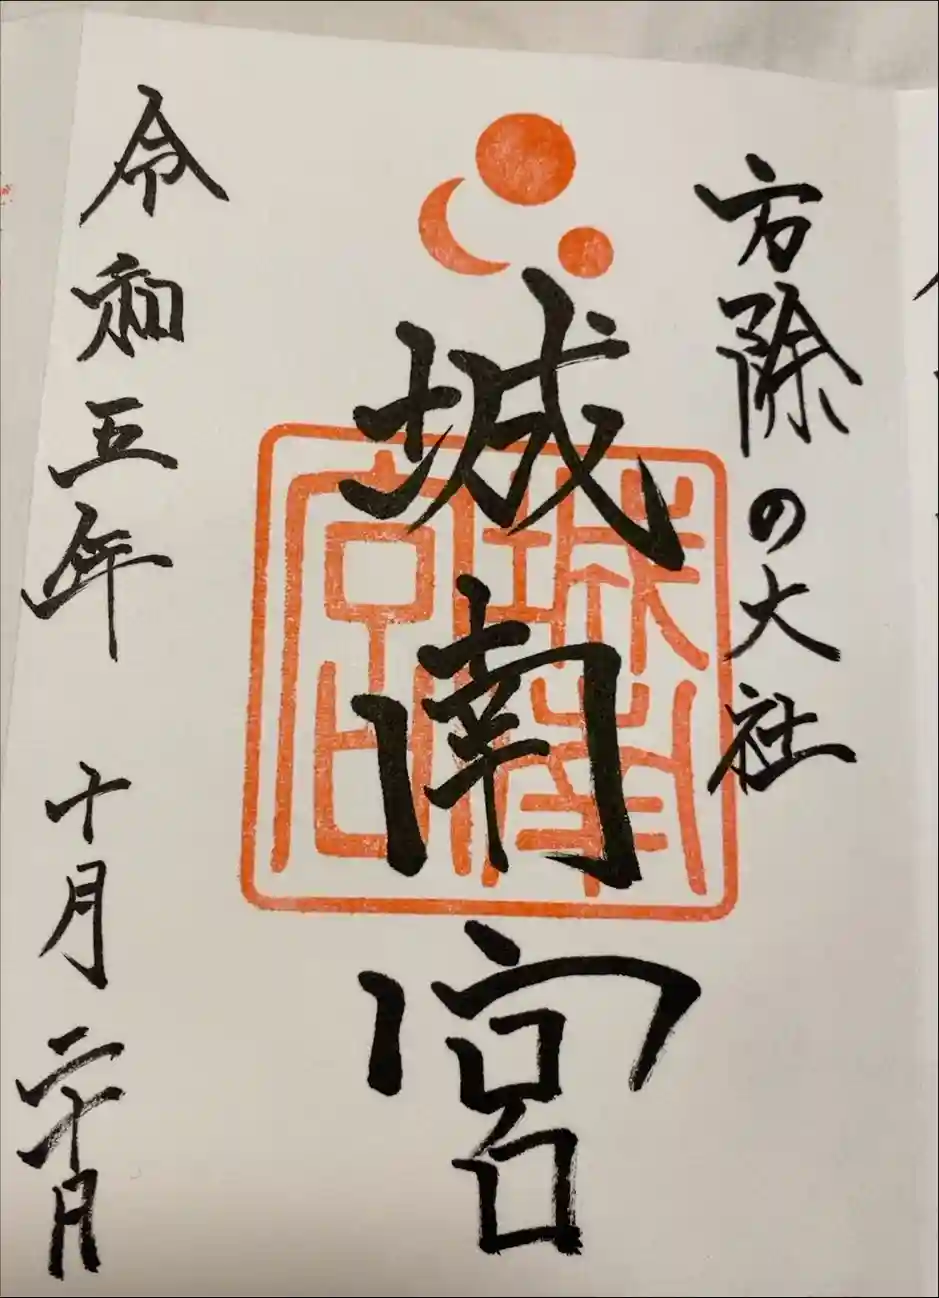 方除の大社
城南宮
城南宮
令和五年 十月 二十日